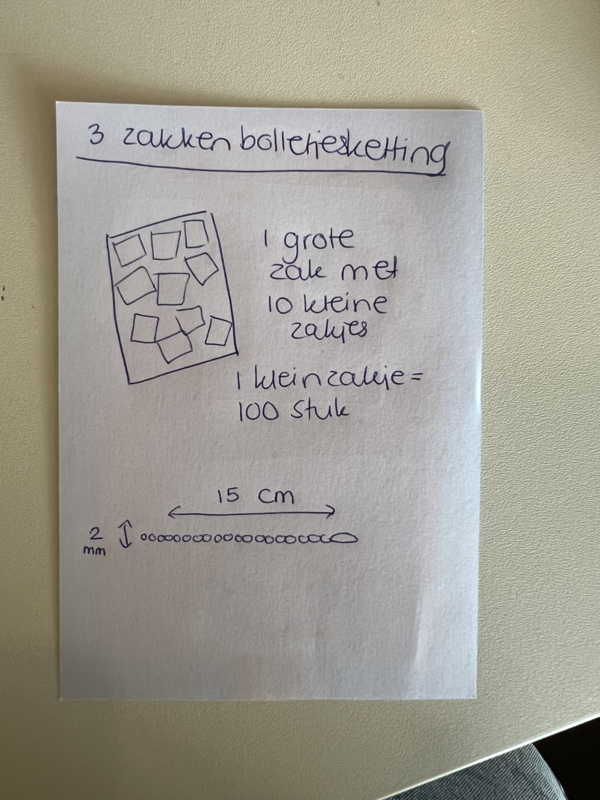 3 zakken bolletjesketting
1 grote
zak met
10 kleine
zakjes
1 klein zakje =
100 stuk
15 cm
2
mm